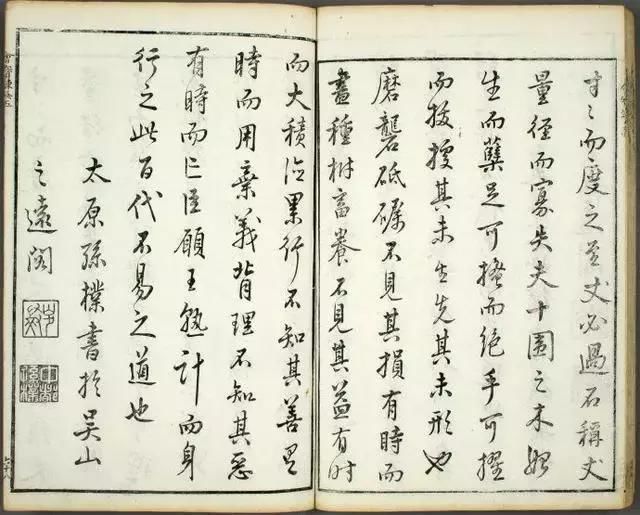 寸〻而度之至丈必過石稱丈
量径而寡失夫十圍之木始
生而蘗足可搔而絕手可擢
而拔據其未生先其未形也
磨礱砥礪不見其損有時而
盡種樹畜養不見其益有时
而大積德累行不知其善有
時而用棄義背理不知其惡
有時而亡臣願王熟計而身
行之此百代不易之道也
太原孫樸書於吳山
之遠閣